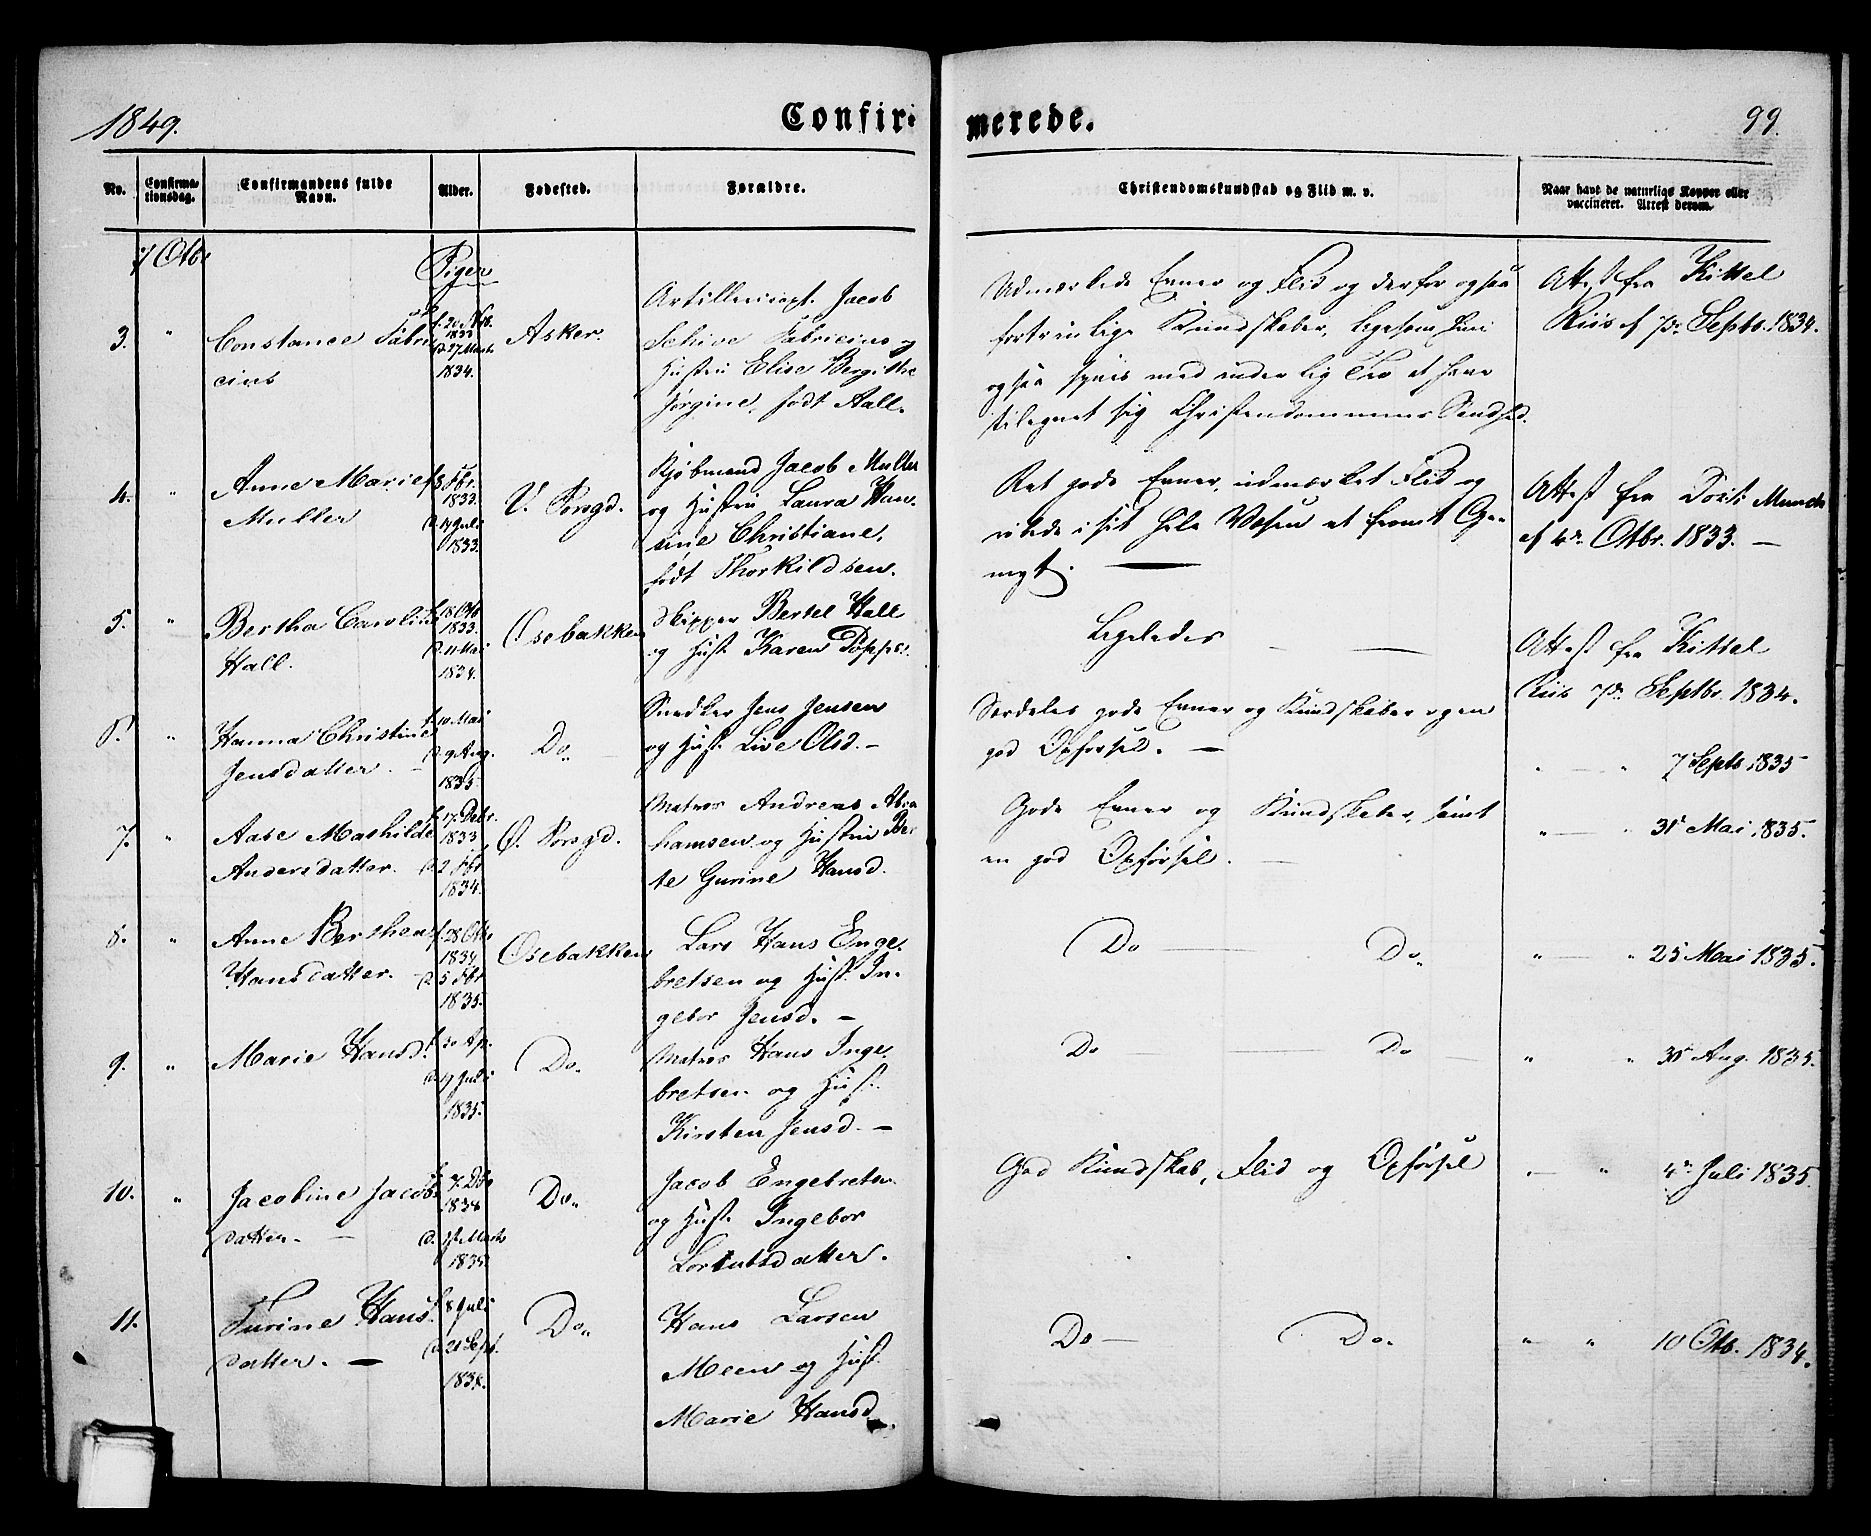 1849.
Confirmerede.
99.
No.
Confirmationsdag.
Confirmandens fulde Navn.
Alder.
Fødested.
Forældre.
Christendomskundskab og Flid m. v.
Naar havt de naturlige Kopper eller vaccineret. Attest derom.
7 Octbr
Piger
3.
"
Constance Fabri
cius
1833
27 Marts
1834.
Asker.
Artillericapt. Jacob
Schive Fabricius og
Hustru Elise Bergithe
Jørgine, født Aall.
Udmærkede Evner og Flid og derfor ogsaa
fortrinlige Kundskaber, ligesom hun
ogsaa synes med inderlig Tro at have
tilegnet sig Christendommens Sandhed.
Attest fra Kittel
Riis af 7de Septbr. 1834.
4.
"
Anne Marie
Muller
f. 3 Fbr.
1833.
d. 14 Juli
1833.
V. Porsgd.
Kjøbmand Jacob Muller
og Hustru Laura Han-
sine Christiane,
født Thorkildsen.
Ret gode Evner, udmærket Flid og
vidste i sit hele Væsen et fromt Ge-
myt.
Attest fra Munch
af 4de Octbr. 1833.
5.
"
Bertha Caroline
Hall.
f. 18 Octb
1833.
d. 11 Mai
1834.
Osebakken
Skipper Bertel Hall
og Hust. Karen Poppe.
Ligeledes
Attest fra Kittel
Riis 7de Septbr. 1834.
6.
"
Hanna Christine
Jensdatter.
f. 10 Mai
d. 9 Aug.
1835.
Do.
Snedker Jens Jensen
og Hust. Live Olsd.
Særdeles gode Evner og Kundskaber og en
god Opførsel.
" — " 7 Septb 1835
7.
"
Aase Mathilde
Andersdatter.
f. 17. Debr.
1833
d. 2 Fbr
1834.
Ø. Porsgd.
Matros Andreas Abra
hamsen og Hustru Ber
te Gurine Hansd.
Gode Evner og Kundskaber, samt
en god Opførsel.
" — " 31 Mai 1835.
8.
"
Anne Berthea
Hansdatter.
f. 28 Octb
1834
d. 5 Fbr
1835.
Osebakken
Lars Hans Enge
bretsen og Hust. In-
gebor Jensd.
Do — Do.
" — " 25 Mai 1835.
9.
"
Marie Hansd.
f. 30 Ap.
d. 19 Juli
1835.
Do.
Matros Hans Inge
bretsen og Hust.
Kirsten Jensd.
Do — Do
" " 31 Aug. 1835.
10.
"
Jacobine Jacobs
datter.
f. 7. Db
1834
d. Marts
1835.
Do.
Jacob Engebretsn.
og Hust. Ingebor
Lorentsdatter.
God Kundskab, Flid og Opførsel
" — " 4de Juli 1835.
11.
Turine Hans
datter.
f. 8 Juli
d. 21 Sept.
1834.
Do.
Hans Larsen
Meen og Hust.
Marie Hansd.
Do — Do.
" — " 10 Octb. 1834.